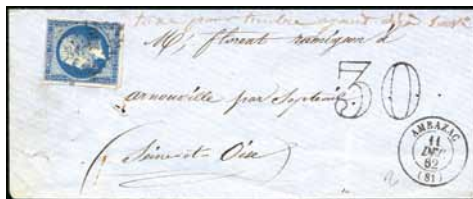 taxe pour timbre ayant déjà servi
M. florent
arnouville par Septeuil.
30
Seine-et-Oise
AMBAZAC
11
DEC
62
(81)